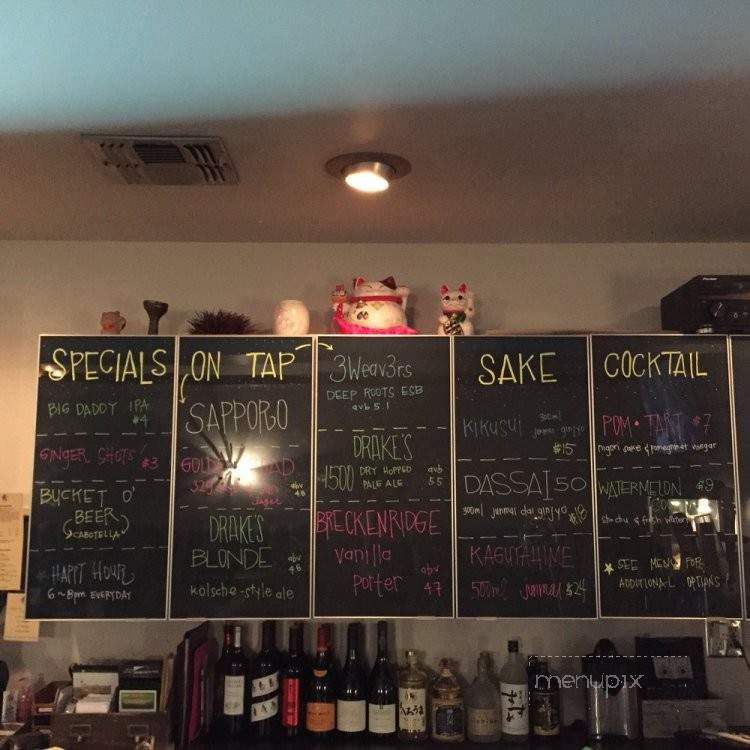 SPECIALS
BIG DADDY IPA
$4
GINGER SHOTS $3
BUCKET O'
BEER
(CABOTELLA)
HAPPY HOUR
6~8pm EVERYDAY
ON TAP
SAPPORO
GOLD ROAD
lager
abv
4.8
DRAKE'S
BLONDE
abv
4.8
kölsche-style ale
3Weav3rs
DEEP ROOTS ESB
avb 5.1
DRAKE'S
1500
DRY HOPPED
PALE ALE
avb
5.5
BRECKENRIDGE
vanilla
Porter
avb
4.7
SAKE
KIKUSUI
300ml
junmai ginjyo
$15
DASSAI 50
300ml junmai dai ginjyo
$18
KAGUTAHIME
500ml junmai $24
COCKTAIL
POM•TART $7
nigori sake & pomegranet vinegar
WATERMELON $9
shochu & fresh
SEE MENU FOR
ADDITIONAL OPTIONS!
Pioneer
menupix